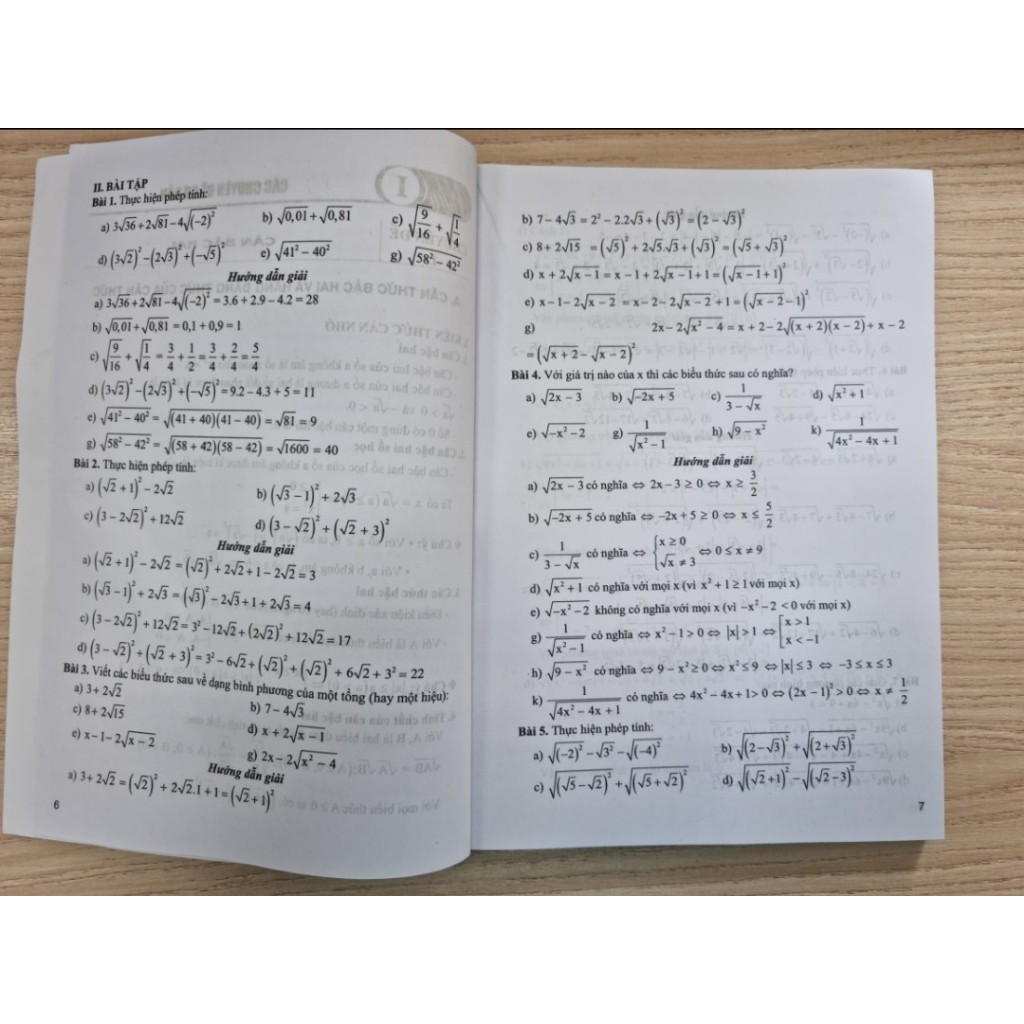 II. BÀI TẬP
Bài 1. Thực hiện phép tính:
a) 3√36 + 2√81 − 4√(−2)² b) √0,01 + √0,81 c) √(9/16) + √(1/4)
d) (3√2)² − (2√3)² + (−√5)² e) √(41² − 40²) g) √(58² − 42²)
Hướng dẫn giải
a) 3√36 + 2√81 − 4√(−2)² = 3.6 + 2.9 − 4.2 = 28
b) √0,01 + √0,81 = 0,1 + 0,9 = 1
c) √(9/16) + √(1/4) = 3/4 + 1/2 = 3/4 + 2/4 = 5/4
d) (3√2)² − (2√3)² + (−√5)² = 9.2 − 4.3 + 5 = 11
e) √(41² − 40²) = √((41 + 40)(41 − 40)) = √81 = 9
g) √(58² − 42²) = √((58 + 42)(58 − 42)) = √1600 = 40
Bài 2. Thực hiện phép tính:
a) (√2 + 1)² − 2√2 b) (√3 − 1)² + 2√3
c) (3 − 2√2)² + 12√2 d) (3 − √2)² + (√2 + 3)²
Hướng dẫn giải
a) (√2 + 1)² − 2√2 = (√2)² + 2√2 + 1 − 2√2 = 3
b) (√3 − 1)² + 2√3 = (√3)² − 2√3 + 1 + 2√3 = 4
c) (3 − 2√2)² + 12√2 = 3² − 12√2 + (2√2)² + 12√2 = 17
d) (3 − √2)² + (√2 + 3)² = 3² − 6√2 + (√2)² + (√2)² + 6√2 + 3² = 22
Bài 3. Viết các biểu thức sau về dạng bình phương của một tổng (hay một hiệu):
a) 3 + 2√2 b) 7 − 4√3
c) 8 + 2√15 d) x + 2√(x − 1)
e) x − 1 − 2√(x − 2) g) 2x − 2√(x² − 4)
Hướng dẫn giải
a) 3 + 2√2 = (√2)² + 2√2.1 + 1 = (√2 + 1)²
6
b) 7 − 4√3 = 2² − 2.2√3 + (√3)² = (2 − √3)²
c) 8 + 2√15 = (√5)² + 2√5.√3 + (√3)² = (√5 + √3)²
d) x + 2√(x − 1) = x − 1 + 2√(x − 1) + 1 = (√(x − 1) + 1)²
e) x − 1 − 2√(x − 2) = x − 2 − 2√(x − 2) + 1 = (√(x − 2) − 1)²
g) 2x − 2√(x² − 4) = x + 2 − 2√((x + 2)(x − 2)) + x − 2
= (√(x + 2) − √(x − 2))²
Bài 4. Với giá trị nào của x thì các biểu thức sau có nghĩa?
a) √(2x − 3) b) √(−2x + 5) c) 1/(3 − √x) d) √(x² + 1)
e) √(−x² − 2) g) 1/√(x² − 1) h) √(9 − x²) k) 1/√(4x² − 4x + 1)
Hướng dẫn giải
a) √(2x − 3) có nghĩa ⇔ 2x − 3 ≥ 0 ⇔ x ≥ 3/2
b) √(−2x + 5) có nghĩa ⇔ −2x + 5 ≥ 0 ⇔ x ≤ 5/2
c) 1/(3 − √x) có nghĩa ⇔ {x ≥ 0; √x ≠ 3 ⇔ 0 ≤ x ≠ 9
d) √(x² + 1) có nghĩa với mọi x (vì x² + 1 ≥ 1 với mọi x)
e) √(−x² − 2) không có nghĩa với mọi x (vì −x² − 2 < 0 với mọi x)
g) 1/√(x² − 1) có nghĩa ⇔ x² − 1 > 0 ⇔ |x| > 1 ⇔ [x > 1; x < −1
h) √(9 − x²) có nghĩa ⇔ 9 − x² ≥ 0 ⇔ x² ≤ 9 ⇔ |x| ≤ 3 ⇔ −3 ≤ x ≤ 3
k) 1/√(4x² − 4x + 1) có nghĩa ⇔ 4x² − 4x + 1 > 0 ⇔ (2x − 1)² > 0 ⇔ x ≠ 1/2
Bài 5. Thực hiện phép tính:
a) √(−2)² − √3² − √(−4)² b) √(2 − √3)² + √(2 + √3)²
c) √(√5 − √2)² + √(√5 + √2)² d) √(√2 + 1)² − √(√2 − 3)²
7